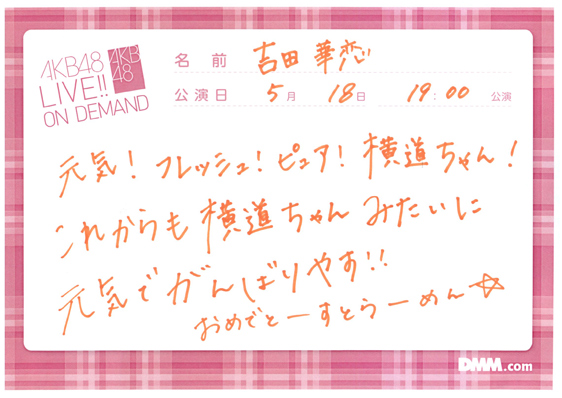 AKB48
LIVE!!
ON DEMAND
AKB
48
名前 吉田華恋
公演日 5月 18日 19:00 公演
元気! フレッシュ! ピュア! 横道ちゃん!
これからも横道ちゃんみたいに
元気でがんばりやす!!
おめでとーすとらーめん☆
DMM.com